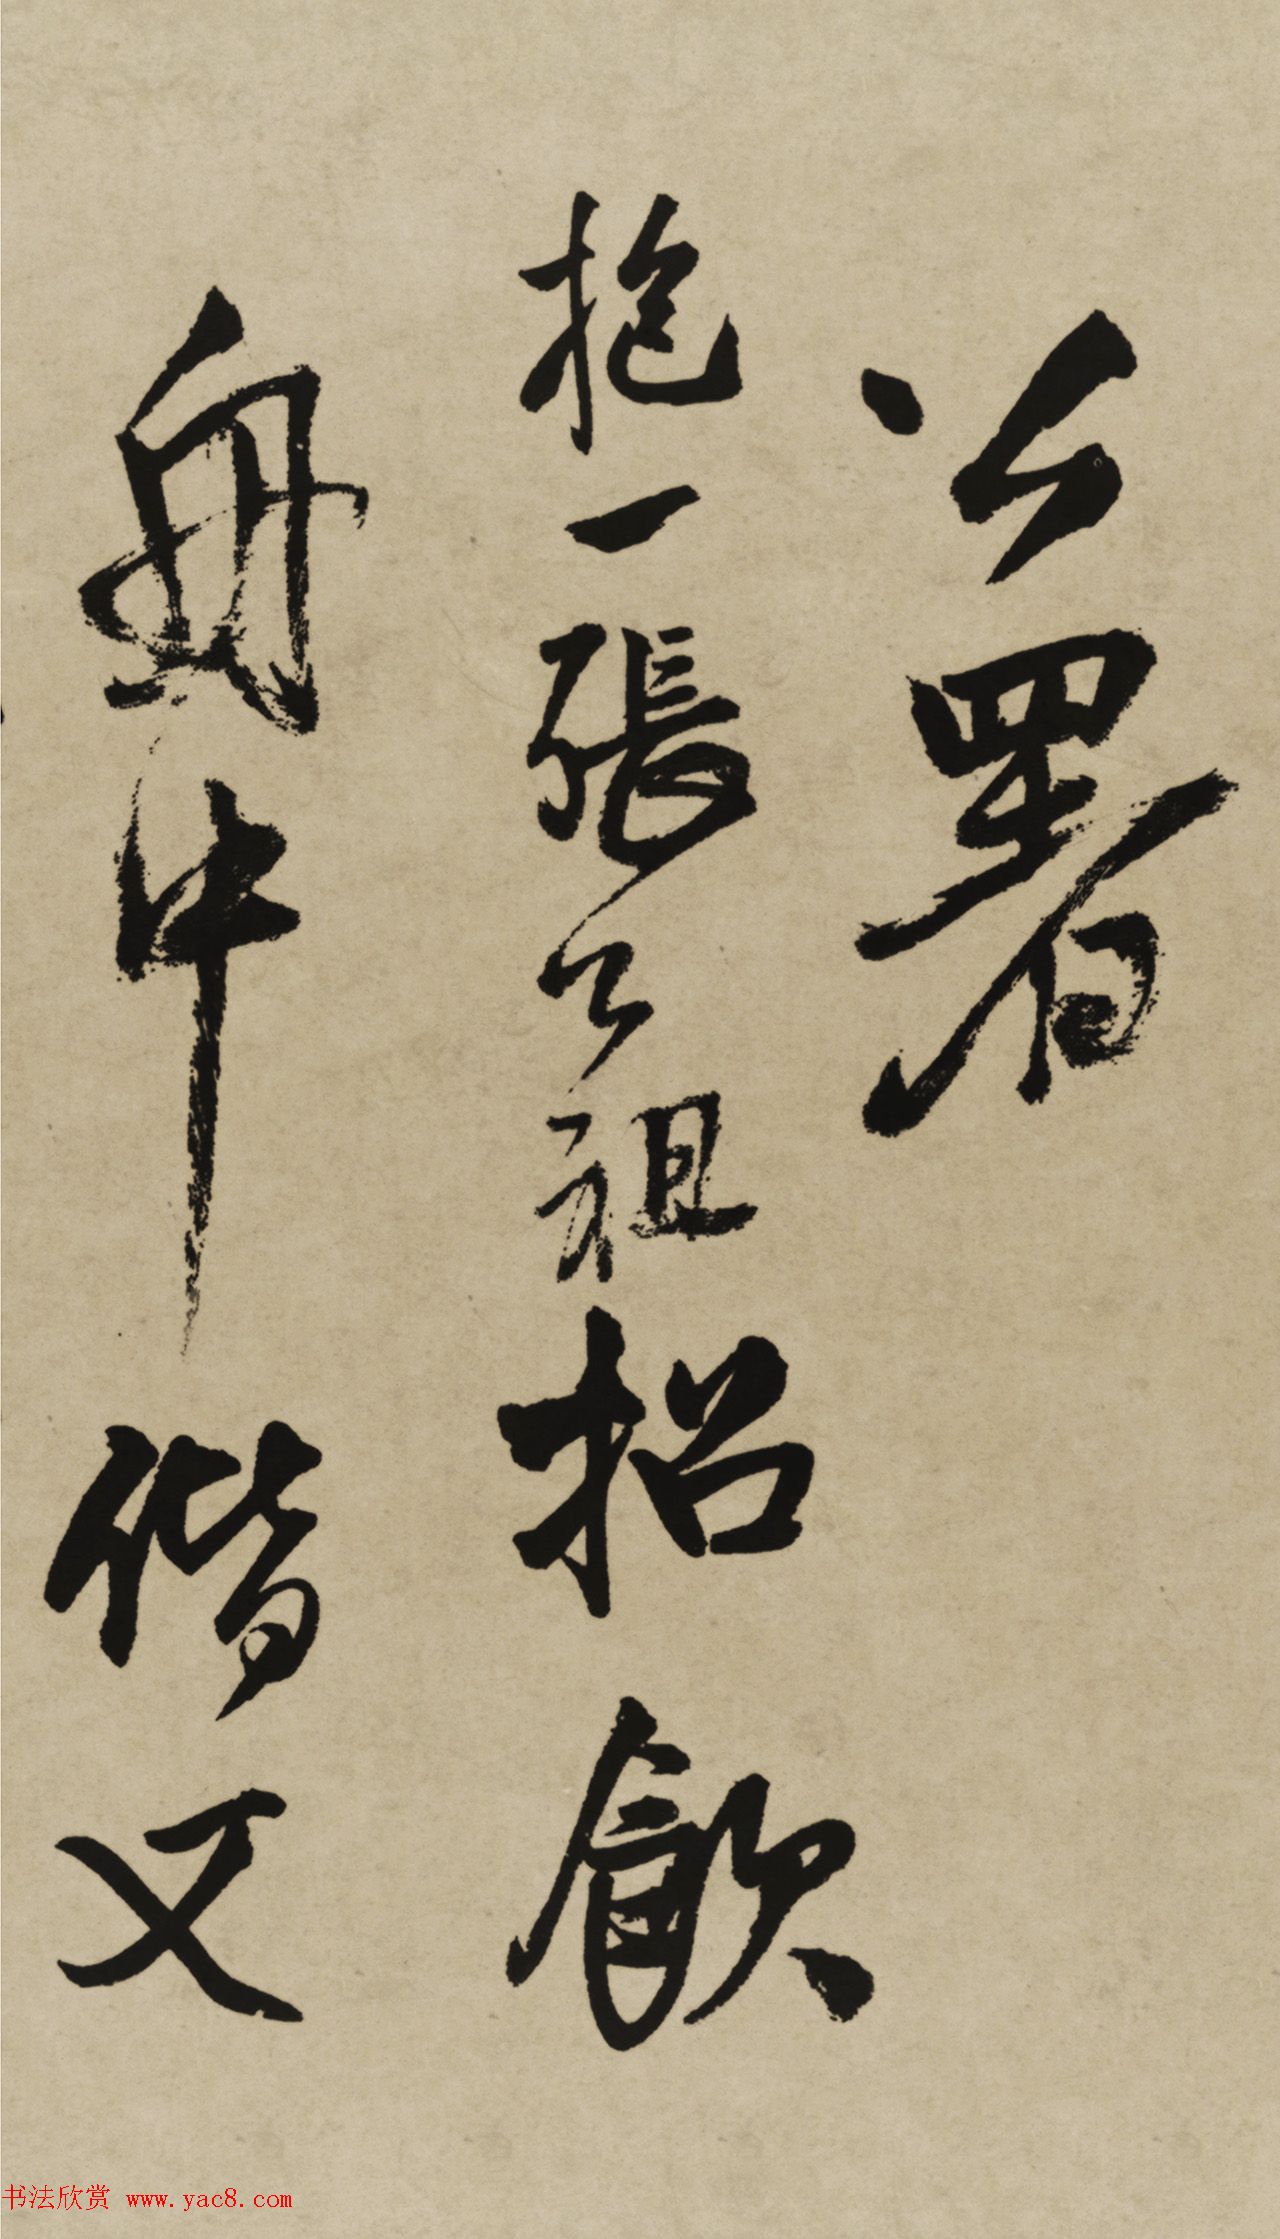 公署
抱一張公祖招飲
舟中偕文
书法欣赏 www.yac8.com